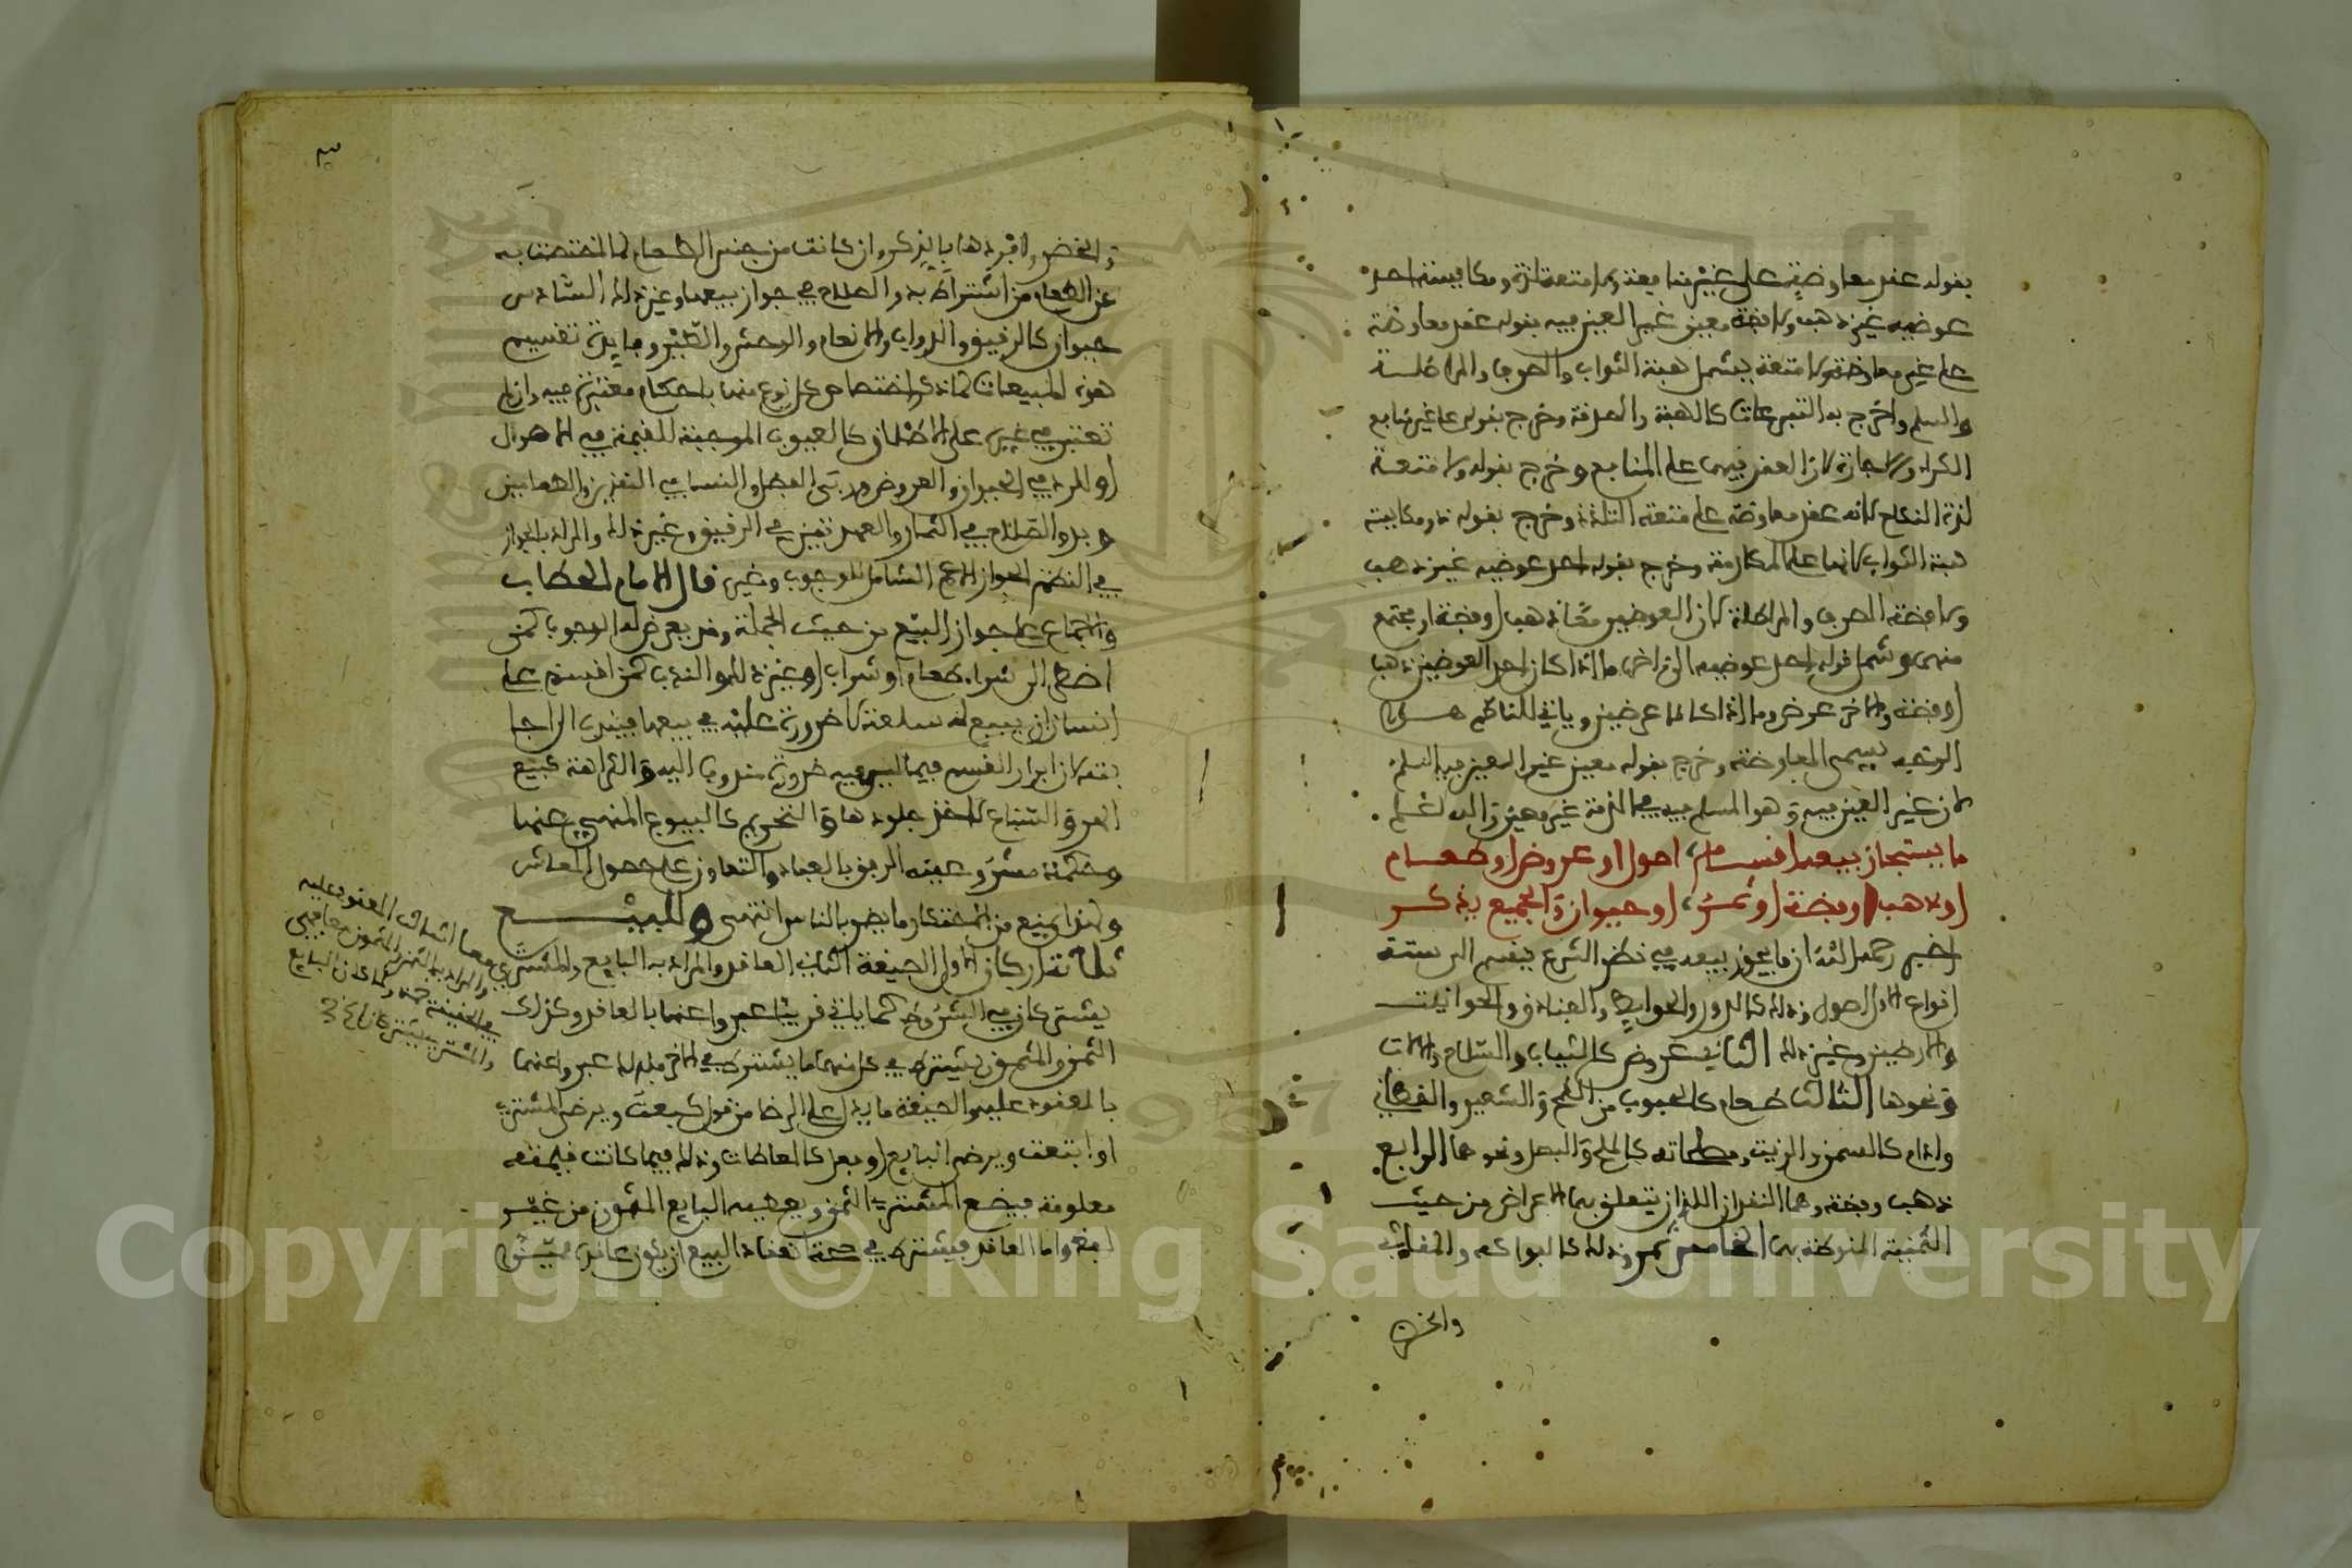 بقوله عقد معاوضة على غير منافع ولا متعة لذة ذو مكايسة احد
عوضيه غير ذهب ولا فضة معين غير العين فيه بقوله عقد معاوضة
على غير منافع ولا متعة يشمل هبة الثواب والصرف والمراطلة
والسلم واخرج به التبرعات كالهبة والصدقة وخرج بقوله على غير منافع
الكراء والاجارة لان العقد فيهما على المنافع وخرج بقوله ولا متعة
لذة النكاح لانه عقد معاوضة على متعة التلذذ وخرج بقوله ذو مكايسة
هبة الثواب لانها على المكارمة وخرج بقوله احد عوضيه غير ذهب
ولا فضة الصرف والمراطلة لان العوضين معا ذهب او فضة او مجتمع
منهما وشمل قوله احد عوضيه الى اخره ما اذا كان احد العوضين ذهبا
او فضة والاخر عرض وما اذا كانا عرضين وياتي للناظم
الوجه يسمى المعاوضة وخرج بقوله معين غير العين فيه السلم
لان غير العين فيه وهو المسلم فيه في الذمة غير معين والله اعلم
ما يستجاز بيعه اقسام اصول او عروض او طعام
او ذهب او فضة او ثمر او حيوان والجميع يذكر
اخبر رحمه الله ان ما يجوز بيعه في نظر الشرع ينقسم الى ستة
انواع الاول اصول وذلك كالدور والحوايط والفنادق والحوانيت
والارضين وغير ذلك الثاني عروض كالثياب والسلاح والالات
ونحوها الثالث طعام كالحبوب من القمح والشعير والقطاني
وادام كالسمن والزيت ومصلحاته كالملح والبصل ونحوهما الرابع
ذهب وفضة وهما النقدان اللذان تتعلق بهما الاغراض من حيث
الثمنية المنوطة بهما الخامس ثمر وذلك كالفواكه والمقاثي
والخضر
٣
والخضر وافردها بالذكر وان كانت من جنس الطعام لما اختصت به
عن الطعام من اشتراط بدو الصلاح في جواز بيعها وغير ذلك السادس
حيوان كالرقيق والدواب والانعام والوحش والطير وفايدة تقسيم
هذه المبيعات لما ذكر اختصاص كل نوع منها باحكام معتبرة فيه وان لم
تعتبر في غيره على الاطلاق كالعيوب الموجبة للقيمة في الاصول
او للرد في الحيوان والعروض وربى الفضل والنسا في النقدين والطعامين
وبدو الصلاح في الثمار والعهدتين في الرقيق وغير ذلك والمراد بالجواز
في النظم الجواز الاعم الشامل للوجوب وغيره قال الامام الحطاب
والاجماع على جواز البيع من حيث الجملة وقد يعرض له الوجوب كمن
اضطر الى شراء طعام او شراب او غير ذلك والندب كمن اقسم على
انسان ان يبيع له سلعة لا ضرورة عليه في بيعها فيندب الى اجا
بته لان ابرار القسم فيما ليس فيه ضرورة مندوب اليه والكراهة كبيع
الهر والسباع لاخذ جلودها والتحريم كالبيوع المنهي عنها
وحكمة مشروعيته الرفق بالعباد والتعاون على حصول المعاش
ولهذا يمنع من احتكار ما يضر بالناس انتهى وللبيع
ثلاثة اركان الاول الصيغة الثاني العاقد والمراد به البايع والمشتري
يشتركان في الشروط كما ياتي قريبا عبروا عنهما بالعاقد وكذلك
الثمن والمثمون يشترط في كل منهما ما يشترط في الاخر فلذلك عبروا عنهما
بالمعقود عليه والصيغة ما يدل على الرضا من قول كبعت ويرضى المشتري
او ابتعت ويرضى البايع او فعل كالمعاطات وذلك فيما كانت قيمته
معلومة فيضع المشتري الثمن ويعطيه البايع المثمون من غير
لفظ واما العاقد فيشترط في صحة انعقاد البيع ان يكون عاقده مميزا
معا الثالث المعقود عليه
والمراد به الثمن والمثمون
في الحقيقة
والمشتري يشتركان